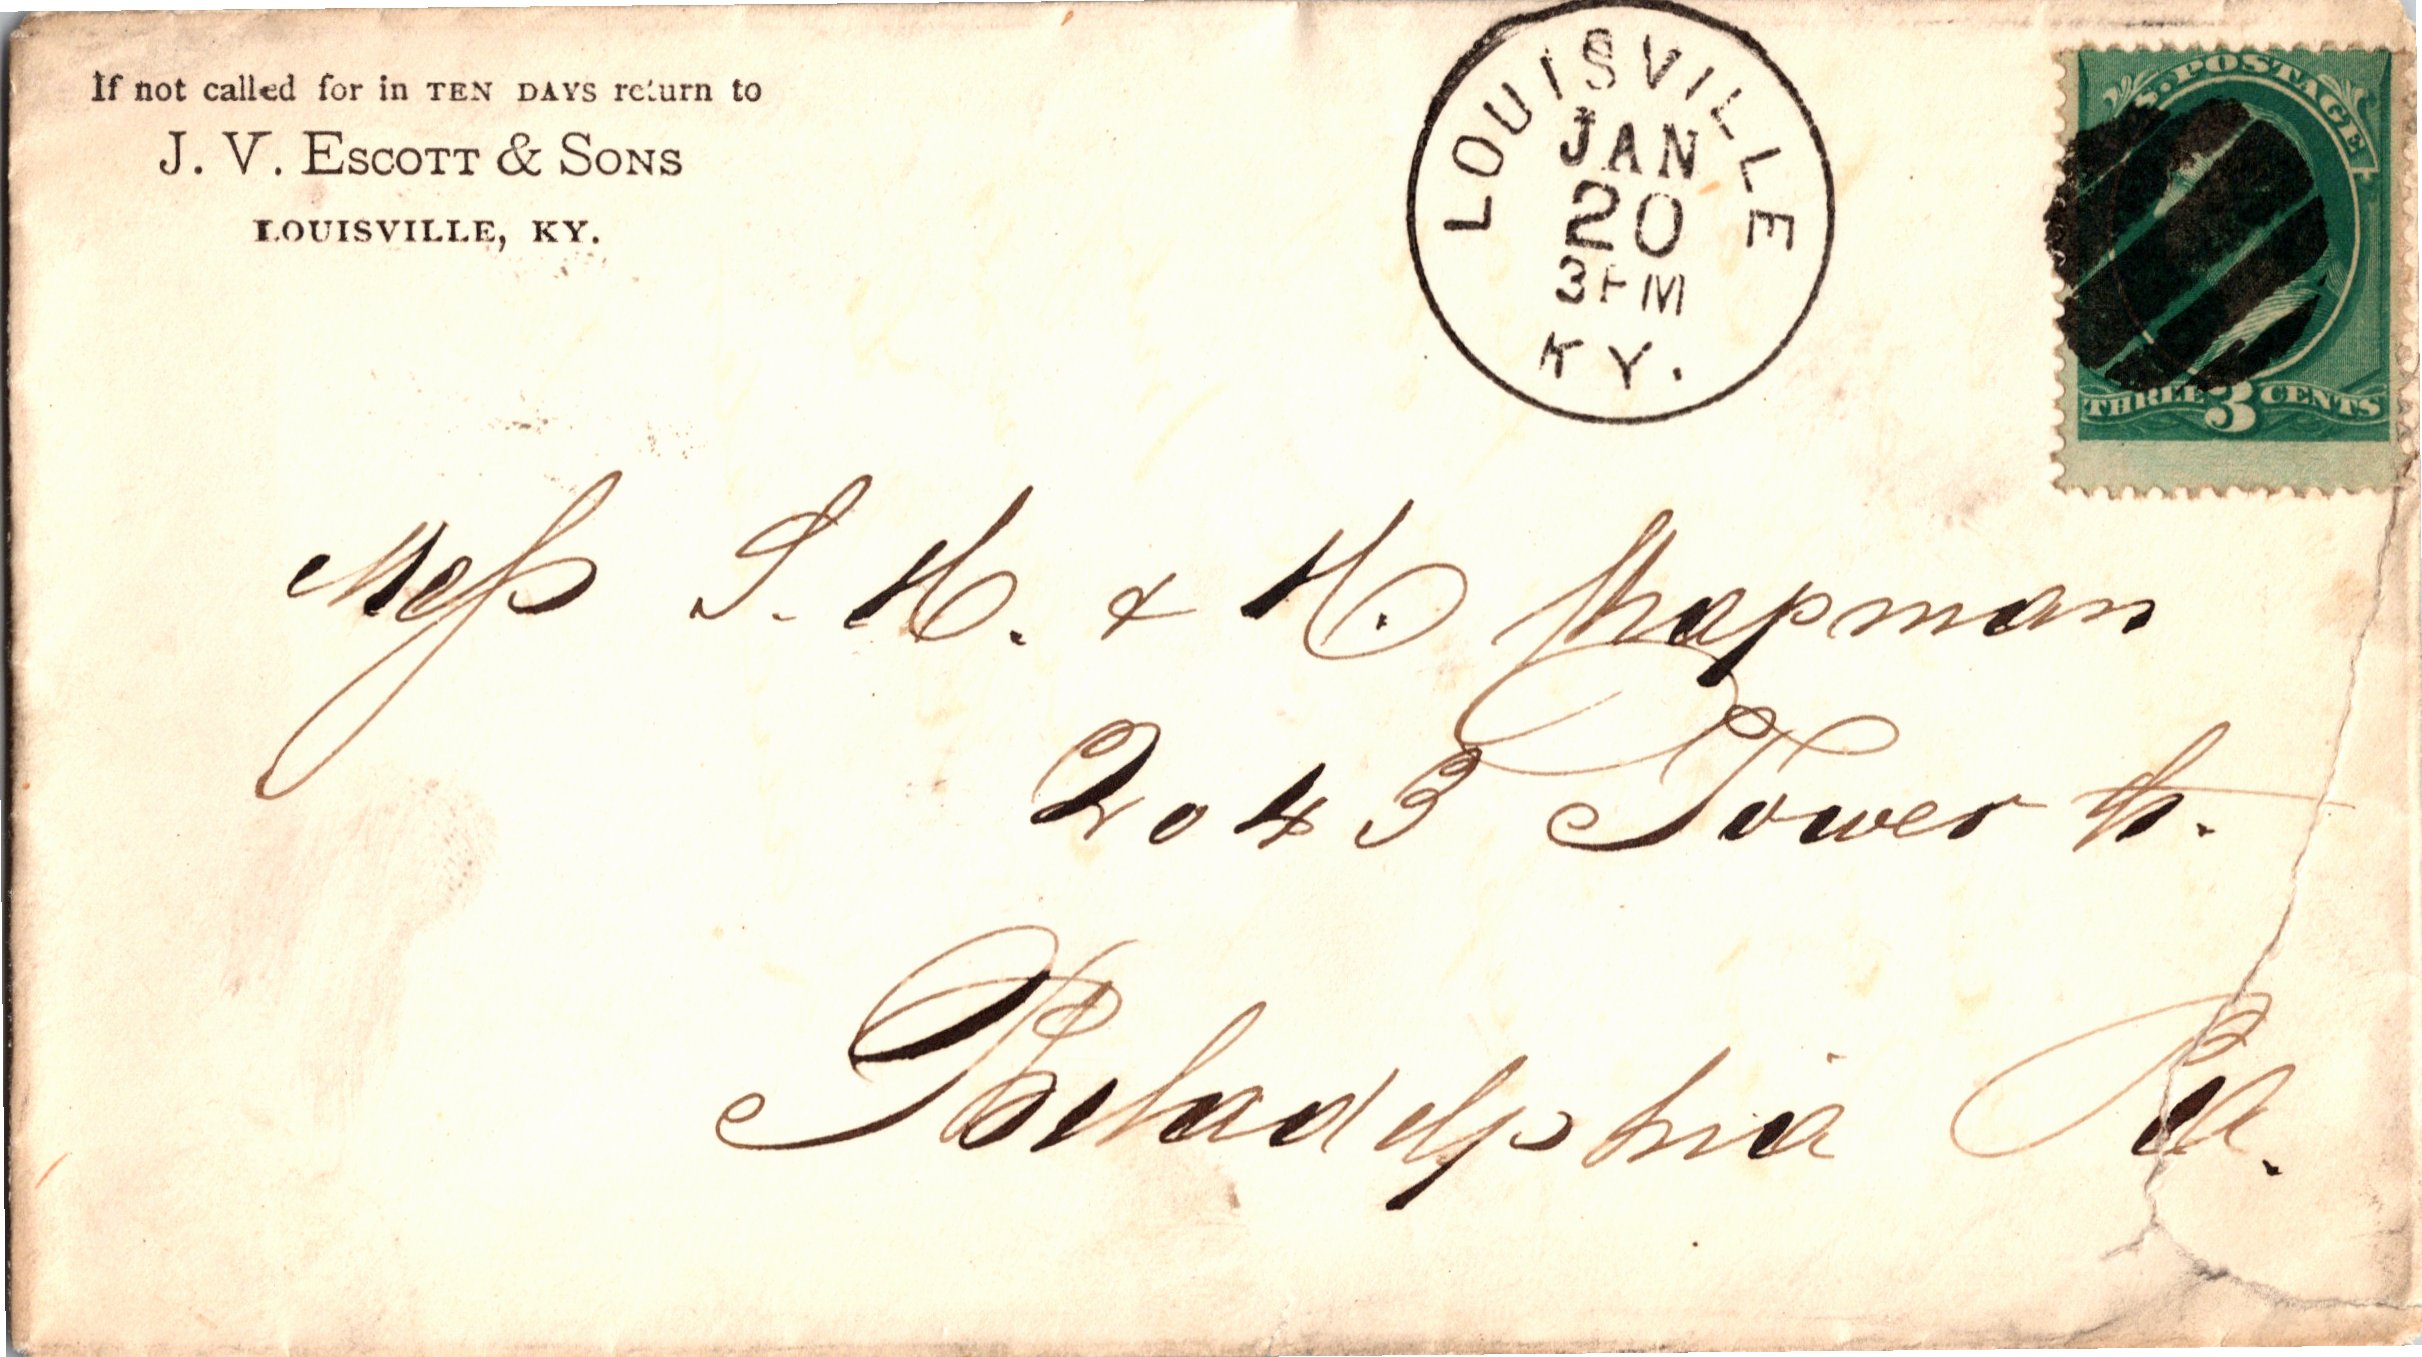 If not called for in TEN DAYS return to
J. V. ESCOTT & SONS
LOUISVILLE, KY.
LOUISVILLE
JAN
20
3 PM
KY.
S. POSTAGE
THREE 3 CENTS
Mess S. H. & H. Chapman
2043 Tower St.
Philadelphia Pa.